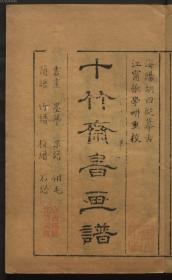 海陽胡曰從摹古
江寧張學畊重校
十竹齋書畫譜
書畫　墨華　果譜　翎毛
蘭譜　竹譜　梅譜　石譜